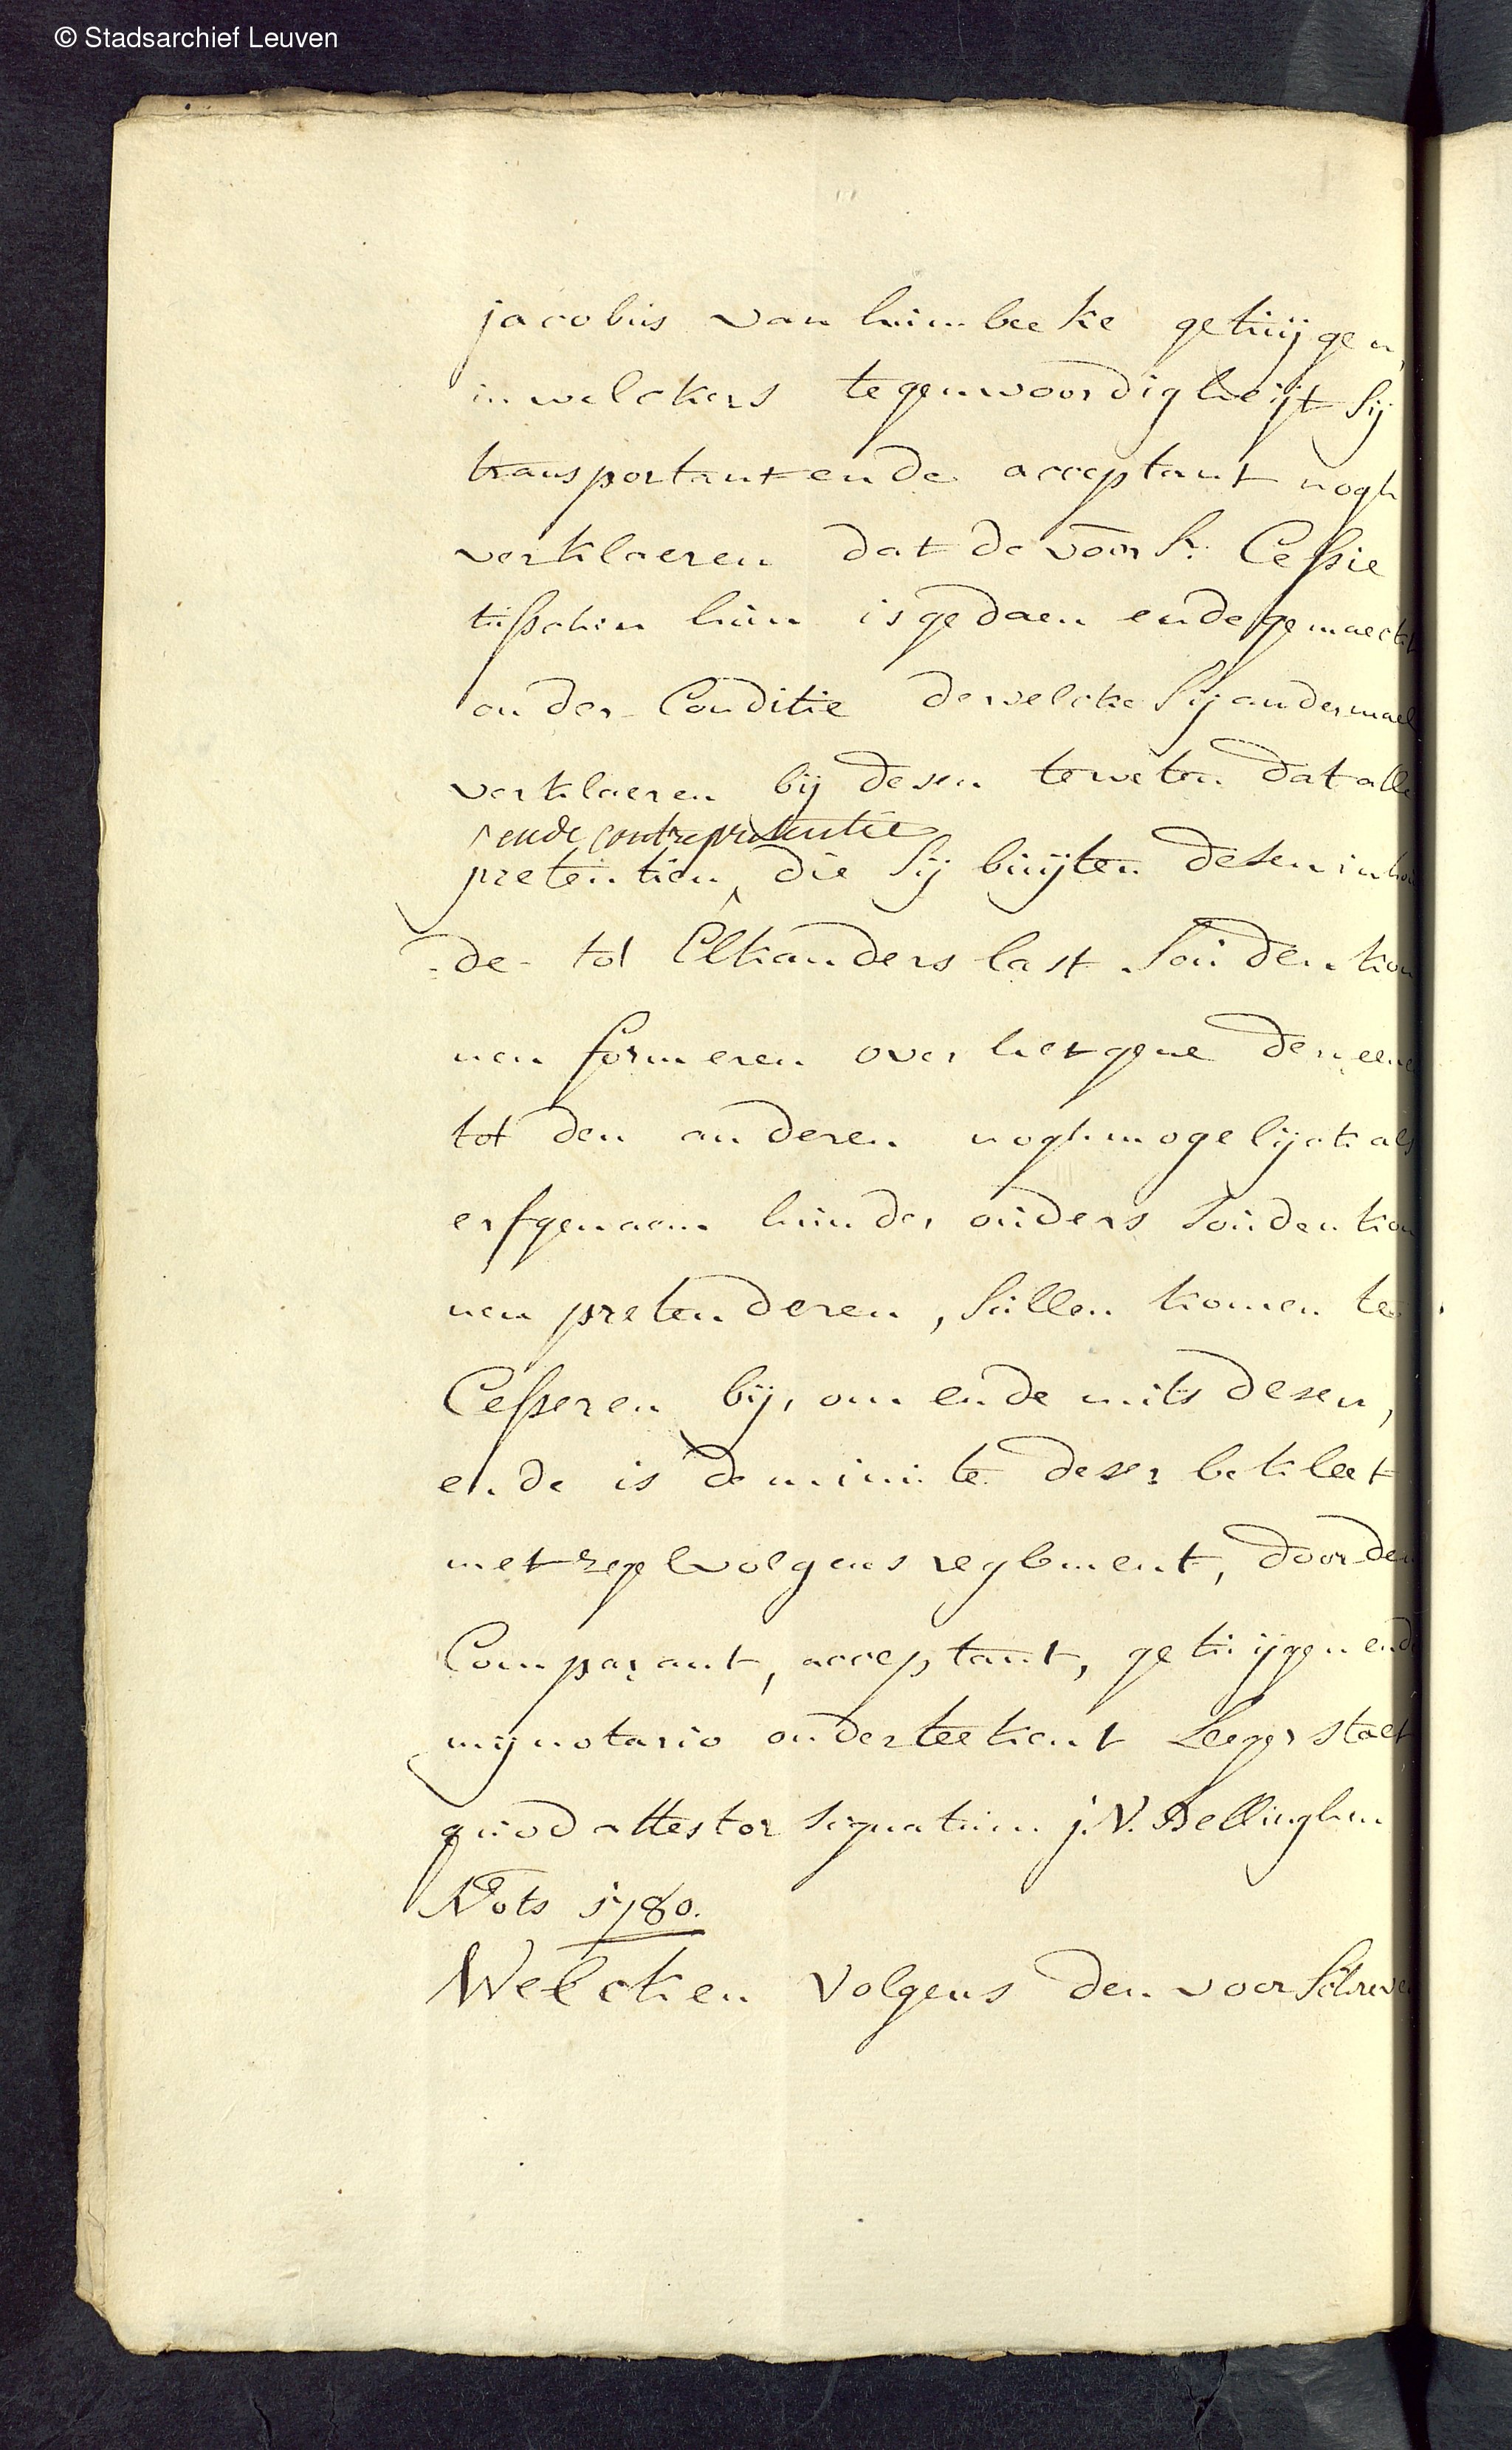 © Stadsarchief Leuven
jacobus van himbeeke getuijgen,
in welckers tegenwoordigheijt sij
transportant ende acceptant nogh
verklaeren dat de voors. Cessie
tusschen hun is gedaen ende gemaeckt
onder Conditie de welcke sij andermael
verklaeren bij desen te weten dat alle
ende contrepretentie
pretentien, die sij buijten desen inhou
:de tot Elkanders last souden kon
nen formeren over het gene den eenen
tot den anderen nogh mogelijck als
erfgenaem hunder ouders souden kon
nen pretenderen, sullen komen te
Cesseren bij, om ende mits desen,
ende is de minute deser bekleet
met segel volgens reglement, door den
Comparant, acceptant, getuijgen ende
mij notario onderteekent Leeger staet
quod attestor signatum j. V. Bellinghen
Nots 1780.
Welcken volgens den voorschreven